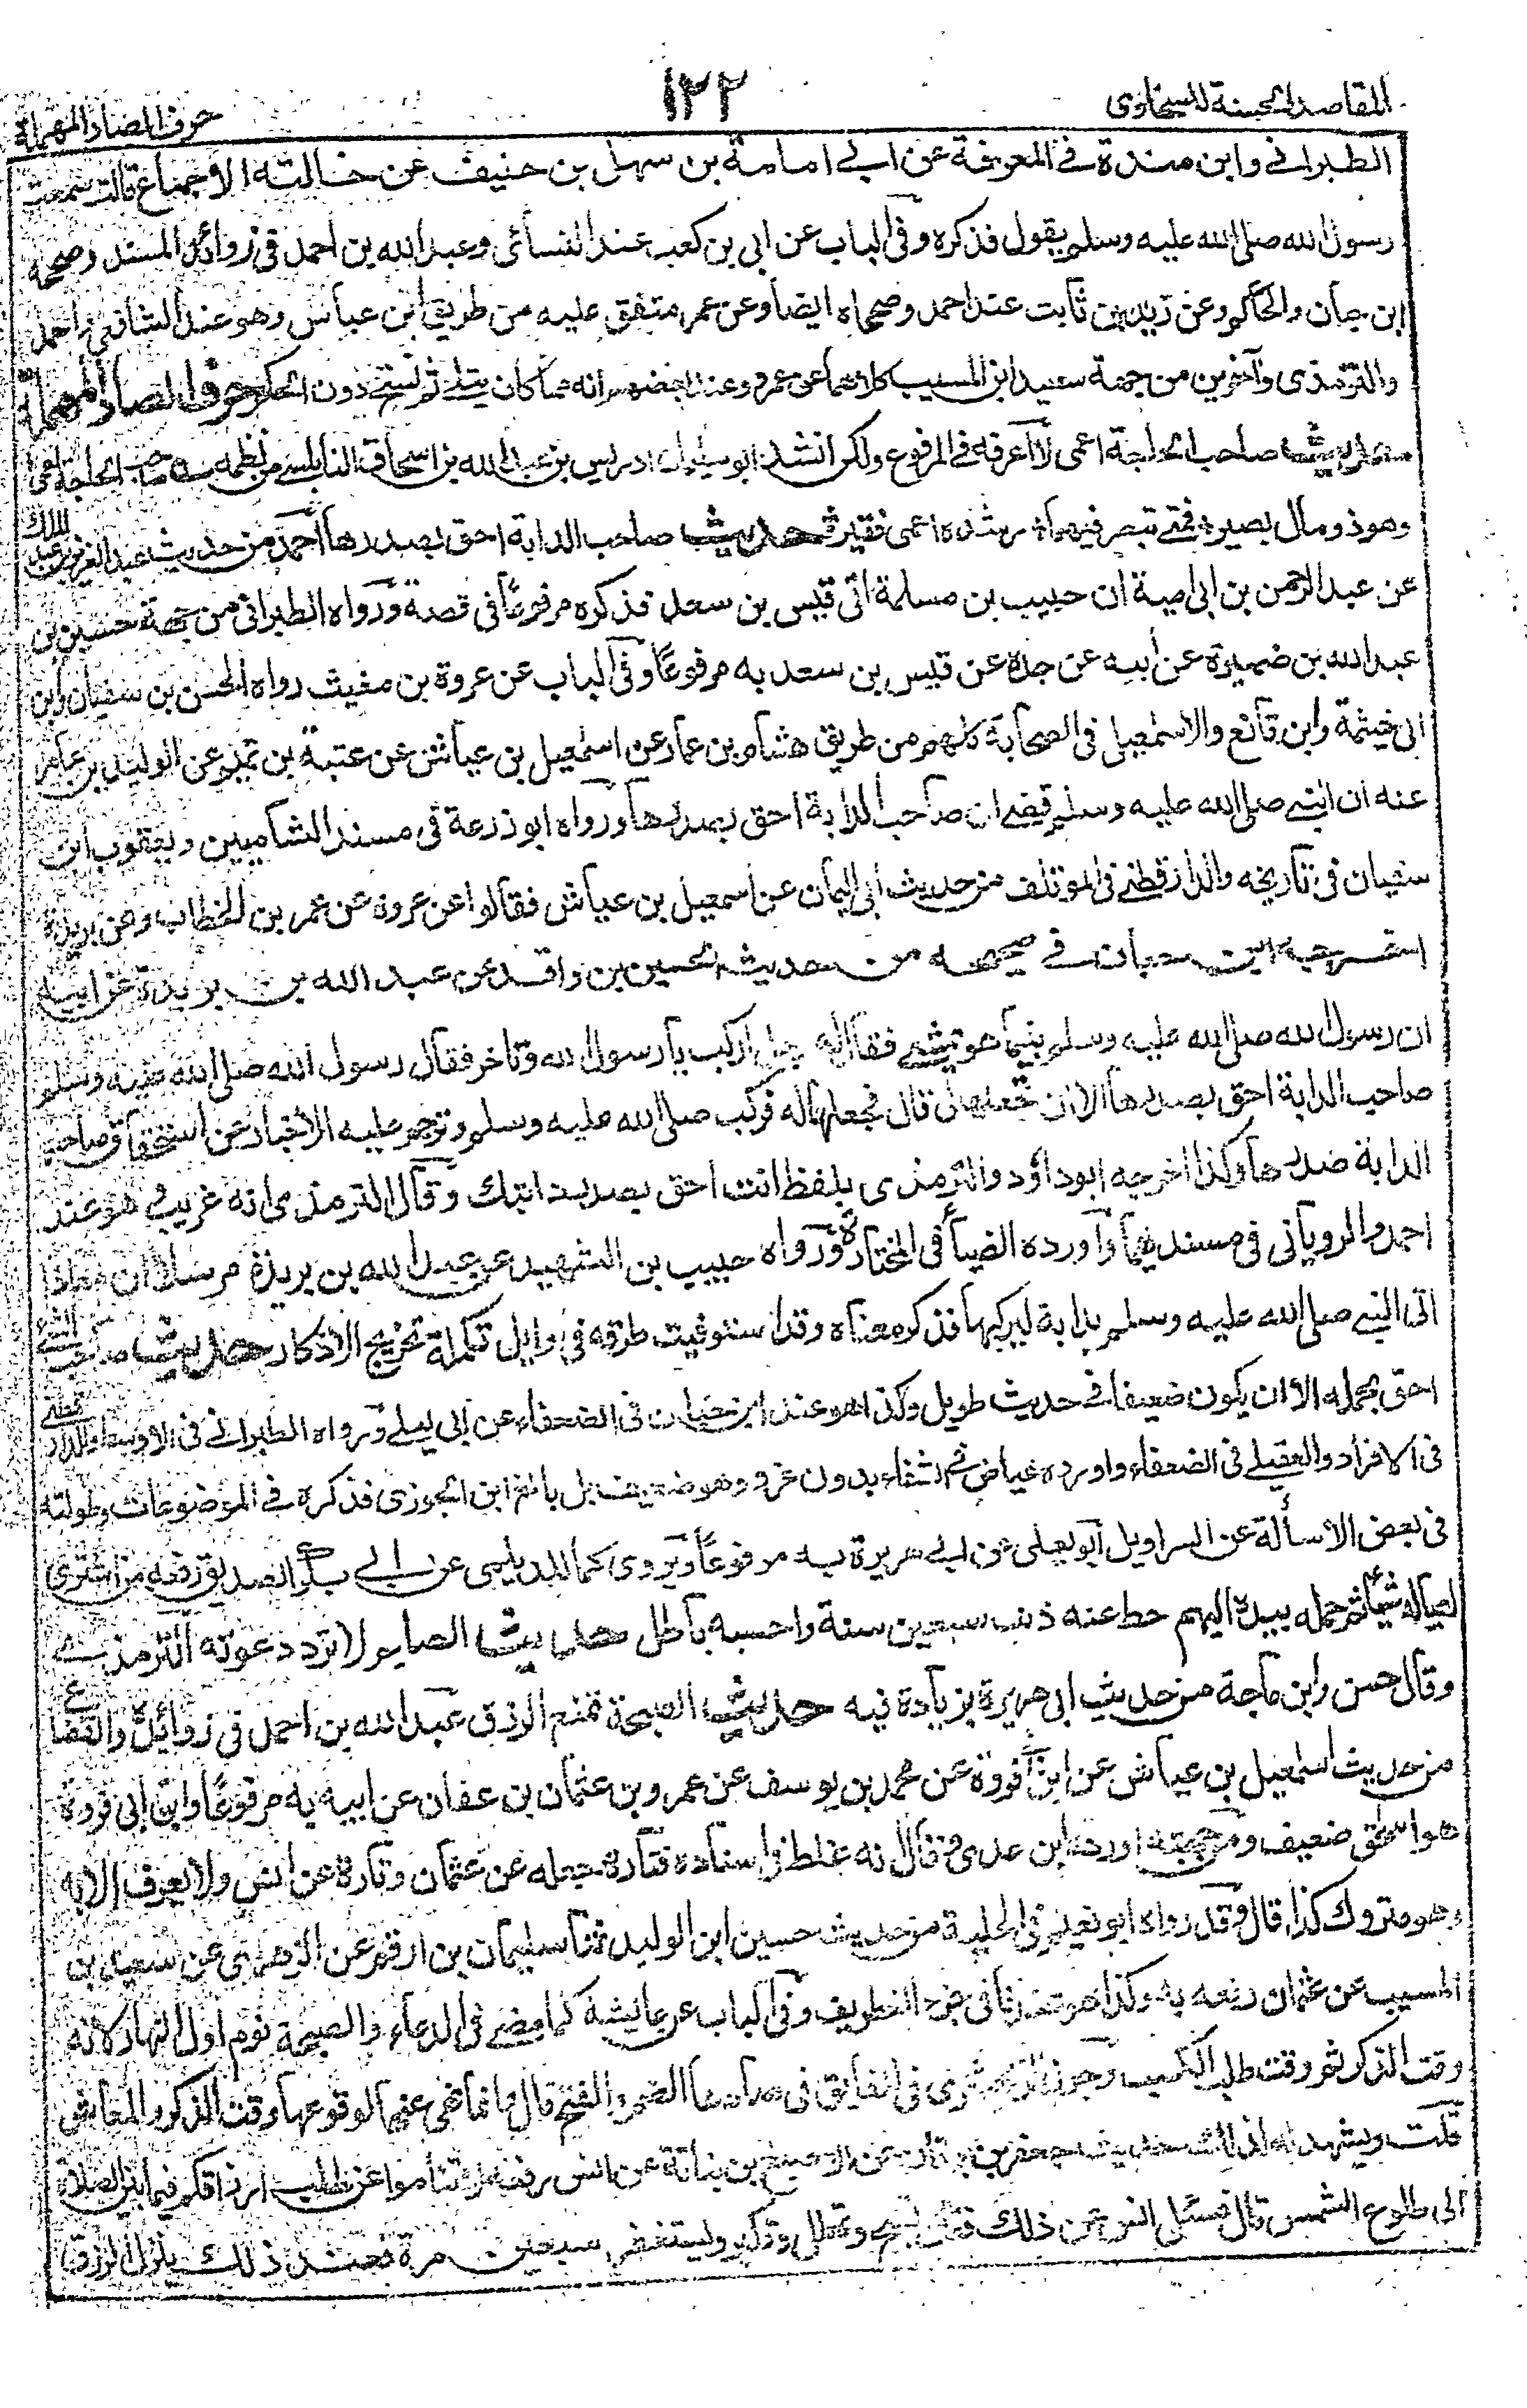 المقاصد الحسنة للسخاوى
١٢٢
حرف الصاد المهملة
الطبرانے وابن مندة فے المعرفة عن ابے امامة بن سهل بن حنيف عن خالته الاجماع قالت سمعت
رسول الله صلى الله عليه وسلم يقول فذكره وفى الباب عن ابى بن كعب عند النسائى وعبد الله بن احمد فى زوائد المسند وصححه
ابن حبان والحاكم وعن زيد بن ثابت عند احمد وصححاه ايضا وعن عمر متفق عليه من طريق ابن عباس وهو عند الشافعى واحمد
والترمذى وآخرين من جهة سعيد ابن المسيب كلاهما عن عمر وعند بعضهم انه مما كان يتلے ثم نسخ دون الحكم حرف الصاد المهملة
حديث صاحب الحاجة اعمى لا اعرفه فے المرفوع ولكن انشد ابو سليمان ادريس بن عبد الله بن اسحاق النابلسے من نظمه صاحب الحاجة اعمى
وهو ذو مال بصير فمتے تبصر فيها رشده اعمى فقير حديث صاحب الدابة احق بصدرها احمد من حديث عبد العزيز بن عبد الملك
عن عبد الرحمن بن ابى امية ان حبيب بن مسلمة اتى قيس بن سعد فذكره مرفوعاً فى قصة ورواه الطبرانى من جهة حسين بن
عبد الله بن ضميرة عن أبيه عن جده عن قيس بن سعد به مرفوعاً وفى الباب عن عروة بن مغيث رواه الحسن بن سفيان وابن
ابى خيثمة وابن قانع والاسمعيلى فى الصحابة كلهم من طريق هشام بن عمار عن اسمعيل بن عياش عن عتبة بن تميم عن الوليد بن عامر
عنه ان النبے صلى الله عليه وسلم قضے ان صاحب الدابة احق بصدرها ورواه ابو زرعة فى مسند الشاميين ويعقوب ابن
سفيان فى تاريخه والدارقطنے فى المؤتلف من حديث أبى اليمان عن اسمعيل بن عياش فقالوا عن عروة عن عمر بن الخطاب وعن بريدة
اخرجه ابن حبان فے صحيحه من حديث الحسين بن واقد عن عبد الله بن بريدة عن ابيه
ان رسول الله صلى الله عليه وسلم بينما هو يمشے فقال له رجل اركب يا رسول الله وتأخر فقال رسول الله صلى الله عليه وسلم
صاحب الدابة احق بصدرها الا ان تجعلها لى قال فجعلها له فركب صلى الله عليه وسلم وترجم عليه الاخبار عن استحقاق صاحب
الدابة صدرها وكذا اخرجه ابو داؤد والترمذى بلفظ انت احق بصدر دابتك وقال الترمذى انه غريب وهو عند
احمد والرويانى فى مسنديهما وأورده الضياء فى المختارة ورواه حبيب بن الشهيد عن عبد الله بن بريدة مرسلا ان معاذا
اتى النبے صلى الله عليه وسلم بدابة ليركبها فذكر معناه وقد استوفيت طرقه فى اوايل تكملة تخريج الاذكار حديث صاحب الشئ
احق بحمله الا ان يكون ضعيفا فے حديث طويل وكذا هو عند ابن حبان فى الضعفاء عن ابى يعلے ورواه الطبرانے فى الاوسط والدارقطنے
فى الافراد والعقيلے فى الضعفاء واورده عياض فے الشفاء بدون عزو وهو ضعيف بل بالغ ابن الجوزى فذكره فے الموضوعات وطولته
فى بعض الاسألة عن السراويل ابو يعلى عن ابے هريرة به مرفوعاً ويروى كما للديلمى عن ابے بكر الصديق رفعه من اشترى
لعياله شيئا ثم حمله بيده اليهم حط عنه ذنب سبعين سنة واحسبه باطل حديث الصايم لا ترد دعوته الترمذے
وقال حسن وابن ماجة من حديث ابى هريرة بزيادة فيه حديث الصبحة تمنع الرزق عبد الله بن احمد فى زوائده والقضاعى
من حديث اسمعيل بن عياش عن ابن أبى فروة عن محمد بن يوسف عن عمرو بن عثمان بن عفان عن ابيه به مرفوعاً وابن ابى فروة
هو اسحق ضعيف ومن جهته اورده ابن عدى وقال انه غلط فى اسناده فتارة جعله عن عثمان وتارة عن انس ولا يعرف الا به
وهو متروك كذا قال وقد رواه ابو نعيم فى الحلية من حديث حسين ابن الوليد ثنا سليمان بن ارقم عن الزهرى عن سعيد بن
المسيب عن عثمان رفعه به وكذا هو عندنا فى جزء الغطريف وفى الباب عن عائشة كما مضے فى الدعاء والصبحة نوم اول النهار لانه
وقت الذكر ثم وقت طلب الكسب وجوز الزمخشرى فى الفائق فى صادها الضم والفتح قال وانما نهى عنها لوقوعها وقت الذكر والمعاش
قلت ويشهد له حديث جعفر بن عن الاصبغ بن نباتة عن انس رفعه لا تناموا عن طلب ارزاقكم فيما بين الصلاة
الى طلوع الشمس قال فسئل انس عن ذلك فقال يسبح وتهلل وتكبر وليستغفر سبعين مرة فعند ذلك ينزل الرزق